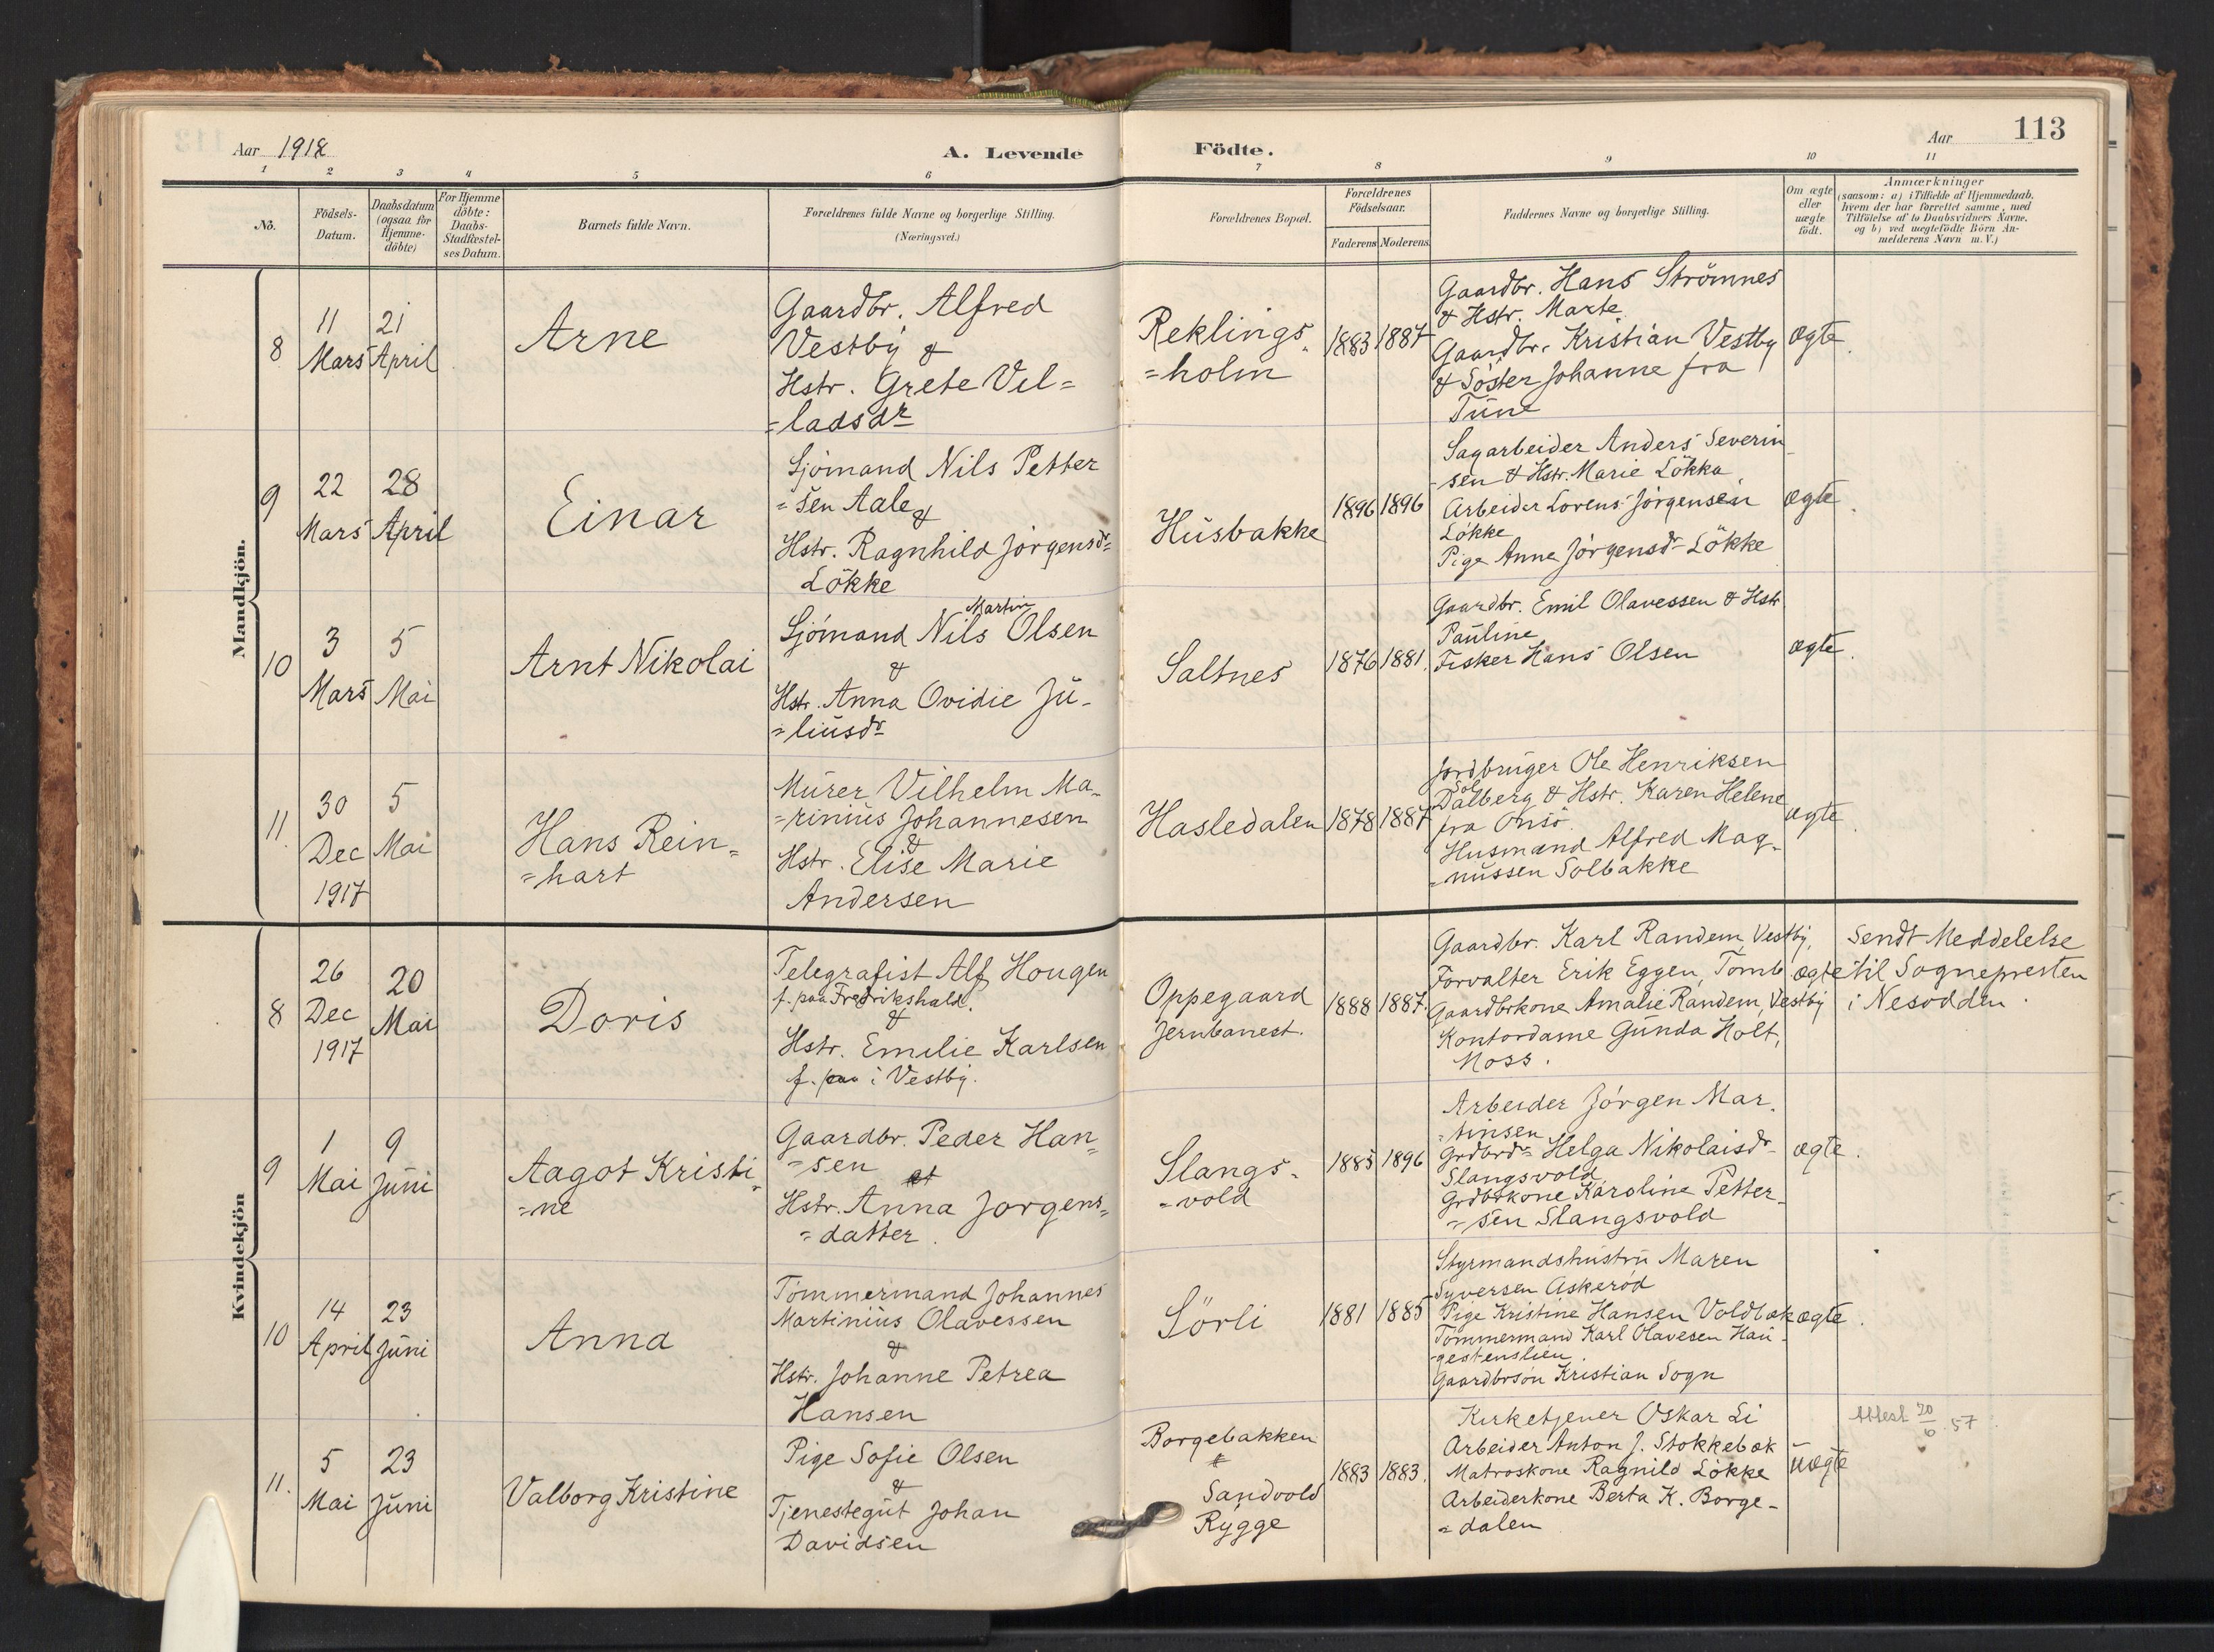 Aar 1918
A. Levende
Födte.
Aar
113
1
2
3
4
5
6
7
8
9
10
11
No.
Födsels-
Datum.
Daabsdatum
(ogsaa for
Hjemme-
döbte)
For Hjemme
döbte:
Daabs-
Stadfæstel-
ses Datum.
Barnets fulde Navn.
Forældrenes fulde Navne og borgerlige Stilling.
(Næringsvei.)
Forældrenes Bopæl.
Forældrenes
Födselsaar.
Faderens
Moderens
Faddernes Navne og borgerlige Stilling.
Om ægte
eller
uægte
födt.
Anmærkninger
(saasom: a) i Tilfælde af Hjemmedaab.
hvem der har forrettet samme, med
Tilföielse af to Daabsvidners Navne.
og b) ved uægtefödte Börn An-
melderens Navn m.V.)
Mandkjön.
8
11
Mars
21
April
Arne
Gaardbr. Alfred
Vestby &
Hstr. Grete Vel=
=ladsdr
Reklings-
=holm
1883
1887
Gaardbr. Hans Strömnes
& Hstr. Marte
Gaardbr. Kristian Vestby
& Söster Johanne fra
Tune
ægte.
9
22
Mars
28
April
Einar
Sjömand Nils Petter
=sen Aale &
Hstr. Ragnhild Jörgensdr=
Lökke
Husbakke
1896
1896
Sagarbeider Anders Severin
-sen & Hstr. Marie Lökka
Arbeider Lorens Jörgensen
Lökke
Pige Anne Jörgensdr Lökke
ægte.
10
3
Mars
5
Mai
Arnt Nikolai
Martin
Sjömand Nils Olsen
&
Hstr. Anna Ovidie Ju-
=liusdr
Saltnes
1876
1881.
Gaardbr. Emil Olavessen & Hstr
Pauline
Fisker Hans Olsen
ægte.
11.
30
Dec
1917
5
Mai
Hans Rein=
=hart
Murer Vilhelm Ma-
=rinius Johannesen
&
Hstr. Elise Marie
Andersen
Hasledalen
1878
1887
Jordbruger Ole Henriksen
Sol
Dalberg & Hstr. Karen Helene
fra Onsö.
Husmand Alfred Mag-
-nussen Solbakke
ægte.
Kvindekjön
8
26
Dec
1917
20
Mai
Doris
Telegrafist Alf Hougen
f. paa Fredrikshald.
&
Hstr. Emilie Karlsen
f. paa i Vestby.
Oppegaard
Jernbanest.
1888
1887.
Gaardbr. Karl Randem, Vestby,
Forvalter Erik Eggen, Tomb
Gaardbrkone Amalie Randem, Vestby
Kontordame Gunda Holt,
Moss.
ægte
Sendt Meddelelse
til Sognepresten
i Nesodden.
9
1
Mai
9
Juni
Aagot Kristi=
=ne
Gaardbr. Peder Han=
=sen
et
Hstr. Anna Jorgens=
=datter.
Slangs-
=vold
1885
1896
Arbeider Jörgen Mar.
=tinsen
Grdbrdr Helga Nikolaisdr
Slangsvold
Grdbrkone Karoline Petter-
=sen Slangsvold
ægte.
10
14
April
23
Juni
Anna
Tömmermand Johannes
Martinius Olavessen
&
Hstr. Johanne Petrea
Hansen
Sörli
1881
1885
Styrmandshustru Maren
Syversen Askeröd
Pige Kristine Hansen Voldbæk
Tömmermand Karl Olavesen Hau-
-gestenslien.
Gaardbrsön Kristian Sogn
ægte.
11.
5
Mai
23
Juni
Valborg Kristine
Pige Sofie Olsen
&
Tjenestegut Johan
Davidsen
Borgebakken
&
Sandvold
Rygge
1883
1883.
Kirketjener Oskar Li
Arbeider Anton J. Stokkebæk
Matroskone Ragnild Lökke
Arbeiderkone Berta K. Borge-
=dalen
uægte
Attest 20/6.57